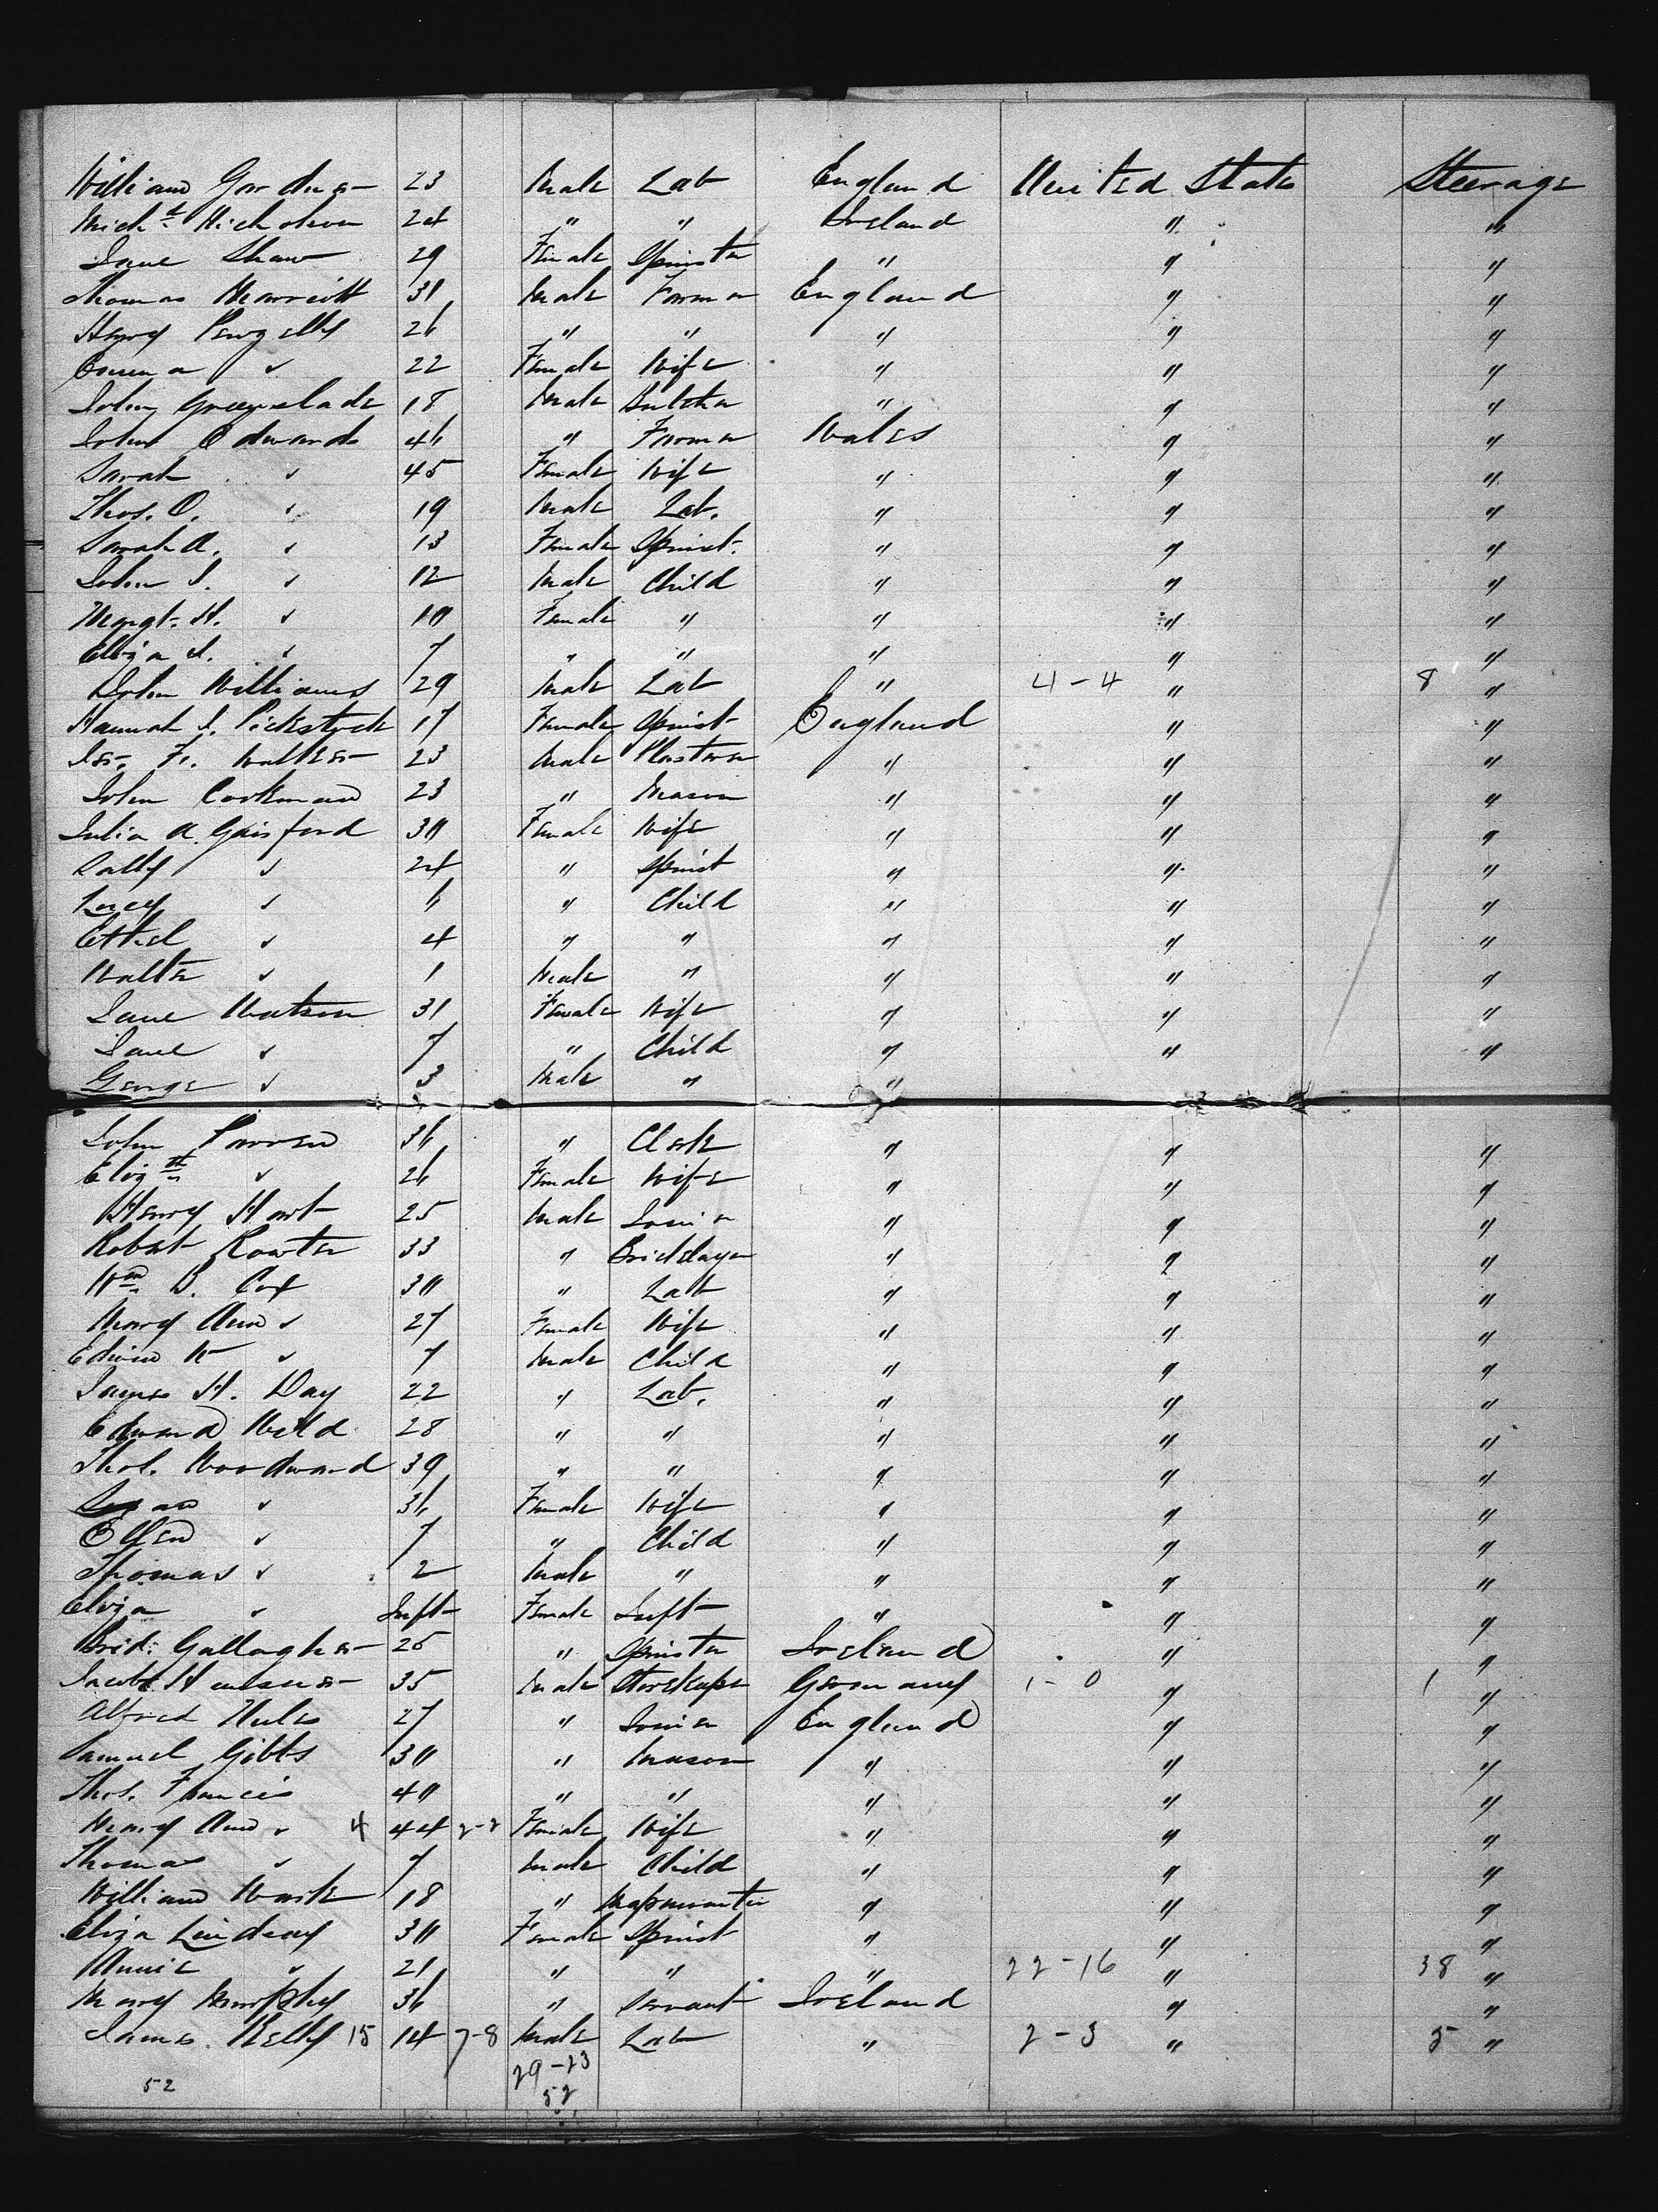 William Gardner 23 Male Lab England United States Steerage
Mich^l Nicholson 24 " " Ireland " "
Jane Shaw 29 Female Spinster " " "
Thomas Marriott 31 Male Farmer England " "
Henry Pengelly 26 " " " " "
Emma " 22 Female Wife " " "
John Greenslade 18 Male Butcher " " "
John Edwards 46 " Farmer Wales " "
Sarah " 45 Female Wife " " "
Thos. O. " 19 Male Lab. " " "
Sarah A. " 13 Female Spinst. " " "
John S. " 12 Male Child " " "
Margt. H. " 10 Female " " " "
Eliza " 7 " " " " "
John Williams 29 Male Lab " 4-4 " 8 "
Hannah J. Pickstock 17 Female Spinst England " "
Walker 23 Male Plasterer " " "
John Cookman 23 " Mason " " "
Julia A. Gainsford 30 Female Wife " " "
Sally " 24 " Spinst " " "
Lucy " 6 " Child " " "
Ethel " 4 " " " " "
Walter " 1 Male " " " "
Jane Watson 31 Female Wife " " "
Jane " 7 " Child " " "
George " 3 Male " "
John Parren 36 " Clerk " " "
Eliz^th " 26 Female Wife " " "
Henry Hart 25 Male Joiner " " "
Robert Rowter 33 " Bricklayer " " "
W^m B. Cox 30 " Lab " " "
Mary Ann " 27 Female Wife " " "
Edwin W " 7 Male Child " " "
James H. Day 22 " Lab. " " "
Edward Weld 28 " " " " "
Thos. Woodward 39 " " " " "
Susan " 36 Female Wife " " "
Ellen " 7 " Child " " "
Thomas " 2 Male " " " "
Eliza " Inft Female Inft " " "
Brid. Gallagher 25 " Spinster Ireland " "
Jacob 35 Male Storekeper Germany 1-0 " 1 "
Alfred Hules 27 " Joiner England " "
Samuel Gibbs 30 " Mason " " "
Thos. Francis 40 " " " " "
Mary Ann " 4 44 2-2 Female Wife " " "
Thomas " 7 Male Child " " "
William Wark 18 " " " "
Eliza Lindsay 30 Female Spinst " " "
Annie " 21 " " " 22-16 " 38 "
Mary Murphy 36 " Servant Ireland " "
James Kelly 15 14 7-8 Male Lab " 2-3 " 5 "
52 29-23
52